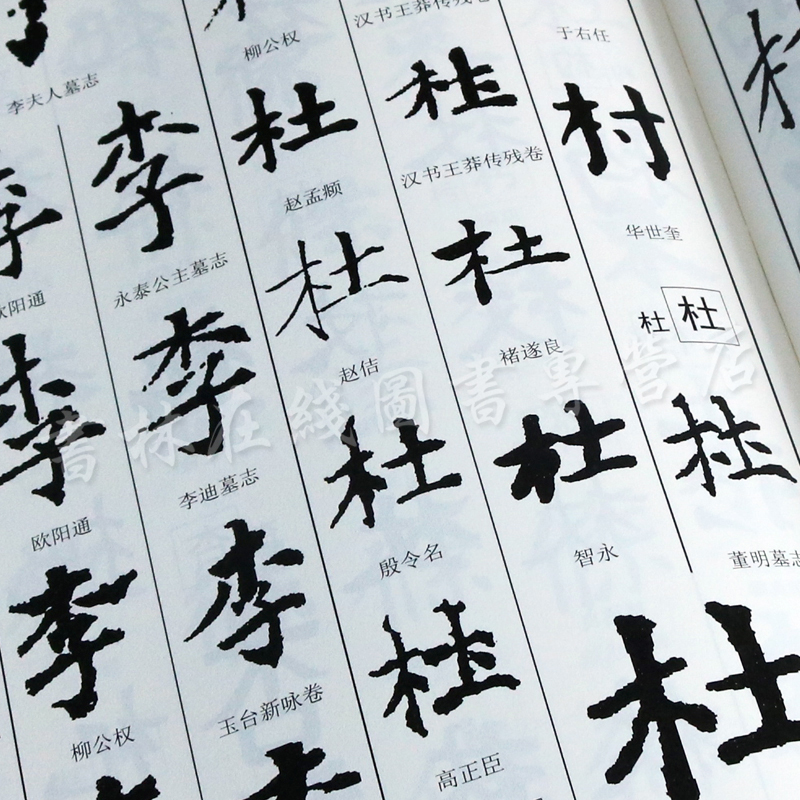 于右任
村
华世奎
杜 杜
杜
董明墓志
汉书王莽传残卷
杜
汉书王莽传残卷
杜
褚遂良
杜
智永
杜
柳公权
杜
赵孟頫
杜
赵佶
杜
殷令名
杜
高正臣
李夫人墓志
李
永泰公主墓志
李
李迪墓志
李
玉台新咏卷
李
欧阳通
李
欧阳通
李
柳公权
書林在綫圖書專營店